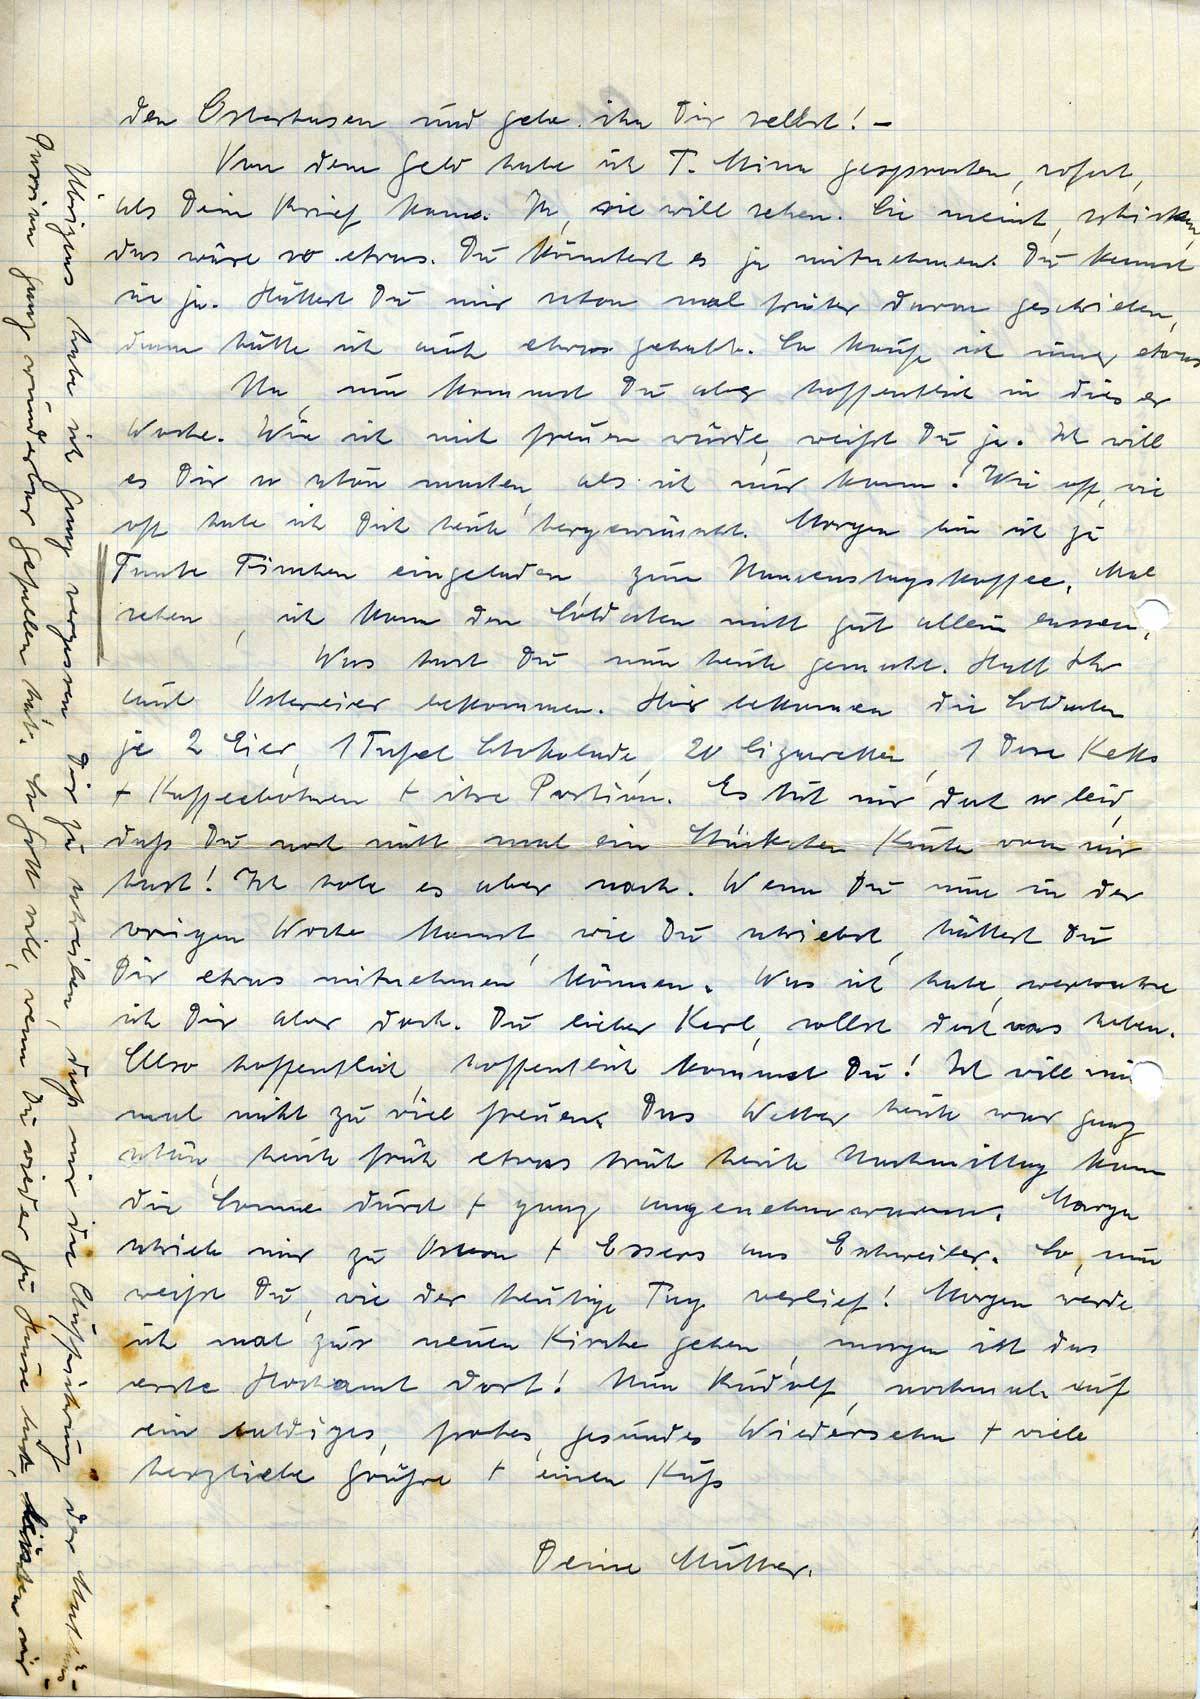 den Osterhasen und gebe ihn Dir selbst! –
Von dem Geld habe ich T. Mina gesprochen, sofort,
als Dein Brief kam. Ja, sie will sehen. Sie meint, schicken,
das wäre so etwas. Du könntest es ja mitnehmen. Du kennst
sie ja. Hättest Du mir schon mal früher davon geschrieben,
dann hätte ich auch etwas gehabt. So kaufe ich immer etwas
Na, nun kommst Du aber hoffentlich in dieser
Woche. Wie ich mich freuen würde, weißt Du ja. Ich will
es Dir so schön machen, als ich nur kann! Wie oft, wie
oft habe ich Dich heute hergewünscht. Morgen bin ich ja
Tante Finchen eingeladen, zum Namenstagskaffee. Mal
sehen, ich kann den Soldaten nicht gut allein lassen.
Was hast Du nun heute gemacht. Habt Ihr
auch Ostereier bekommen. Hier bekamen die Soldaten
je 2 Eier, 1 Tafel Schokolade, 20 Cigaretten, 1 Dose Keks
+ Kaffeebohnen + ihre Portion. Es tut mir doch so leid,
daß Du noch nicht mal ein Stückchen Kuchen von mir
hast! Ich hole es aber nach. Wenn Du nun in der
vorigen Woche kamst, wie Du schriebst, hättest Du
Dir etwas mitnehmen können. Was ich habe, verwahre
ich Dir aber doch. Du lieber Kerl, sollst doch was haben.
Also hoffentlich, hoffentlich kommst Du! Ich will mich
mal nicht zu viel freuen. Das Wetter heute war ganz
schön, heute früh etwas trüb heute Nachmittag kam
die Sonne durch + ganz angenehm warm. Marga
schrieb mir zu Ostern + Essers aus Eschweiler. So, nun
weißt Du, wie der heutige Tag verlief! Morgen werde
ich mal zur neuen Kirche gehen, morgen ist das
erste Hochamt dort! Nun Rudolf, nochmals auf
ein baldiges, frohes, gesundes Wiedersehn + viele
herzliche Grüße + einen Kuß
Deine Mutter.
Übrigens habe ich ganz vergessen Dir zu schreiben, daß mir die Aufführung der Matthäus-
Passion ganz wunderbar gefallen hat. So Gott will, wenn Du wieder zu Hause bist, könnten wir